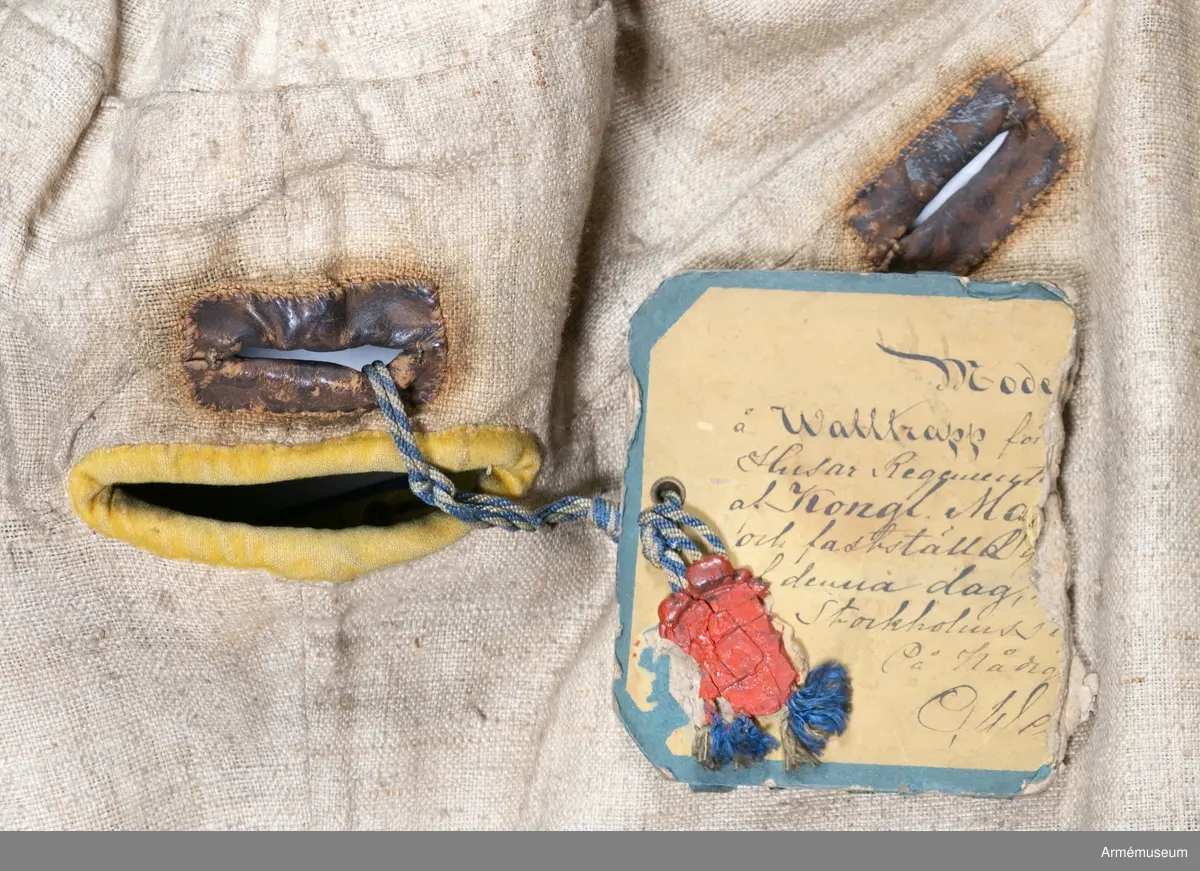 Mode
å Wallkapp för
Husar Regement
af Kongl. Ma
och fastställd
denna dag,
Stockholms s
På Nådig
Armémuseum